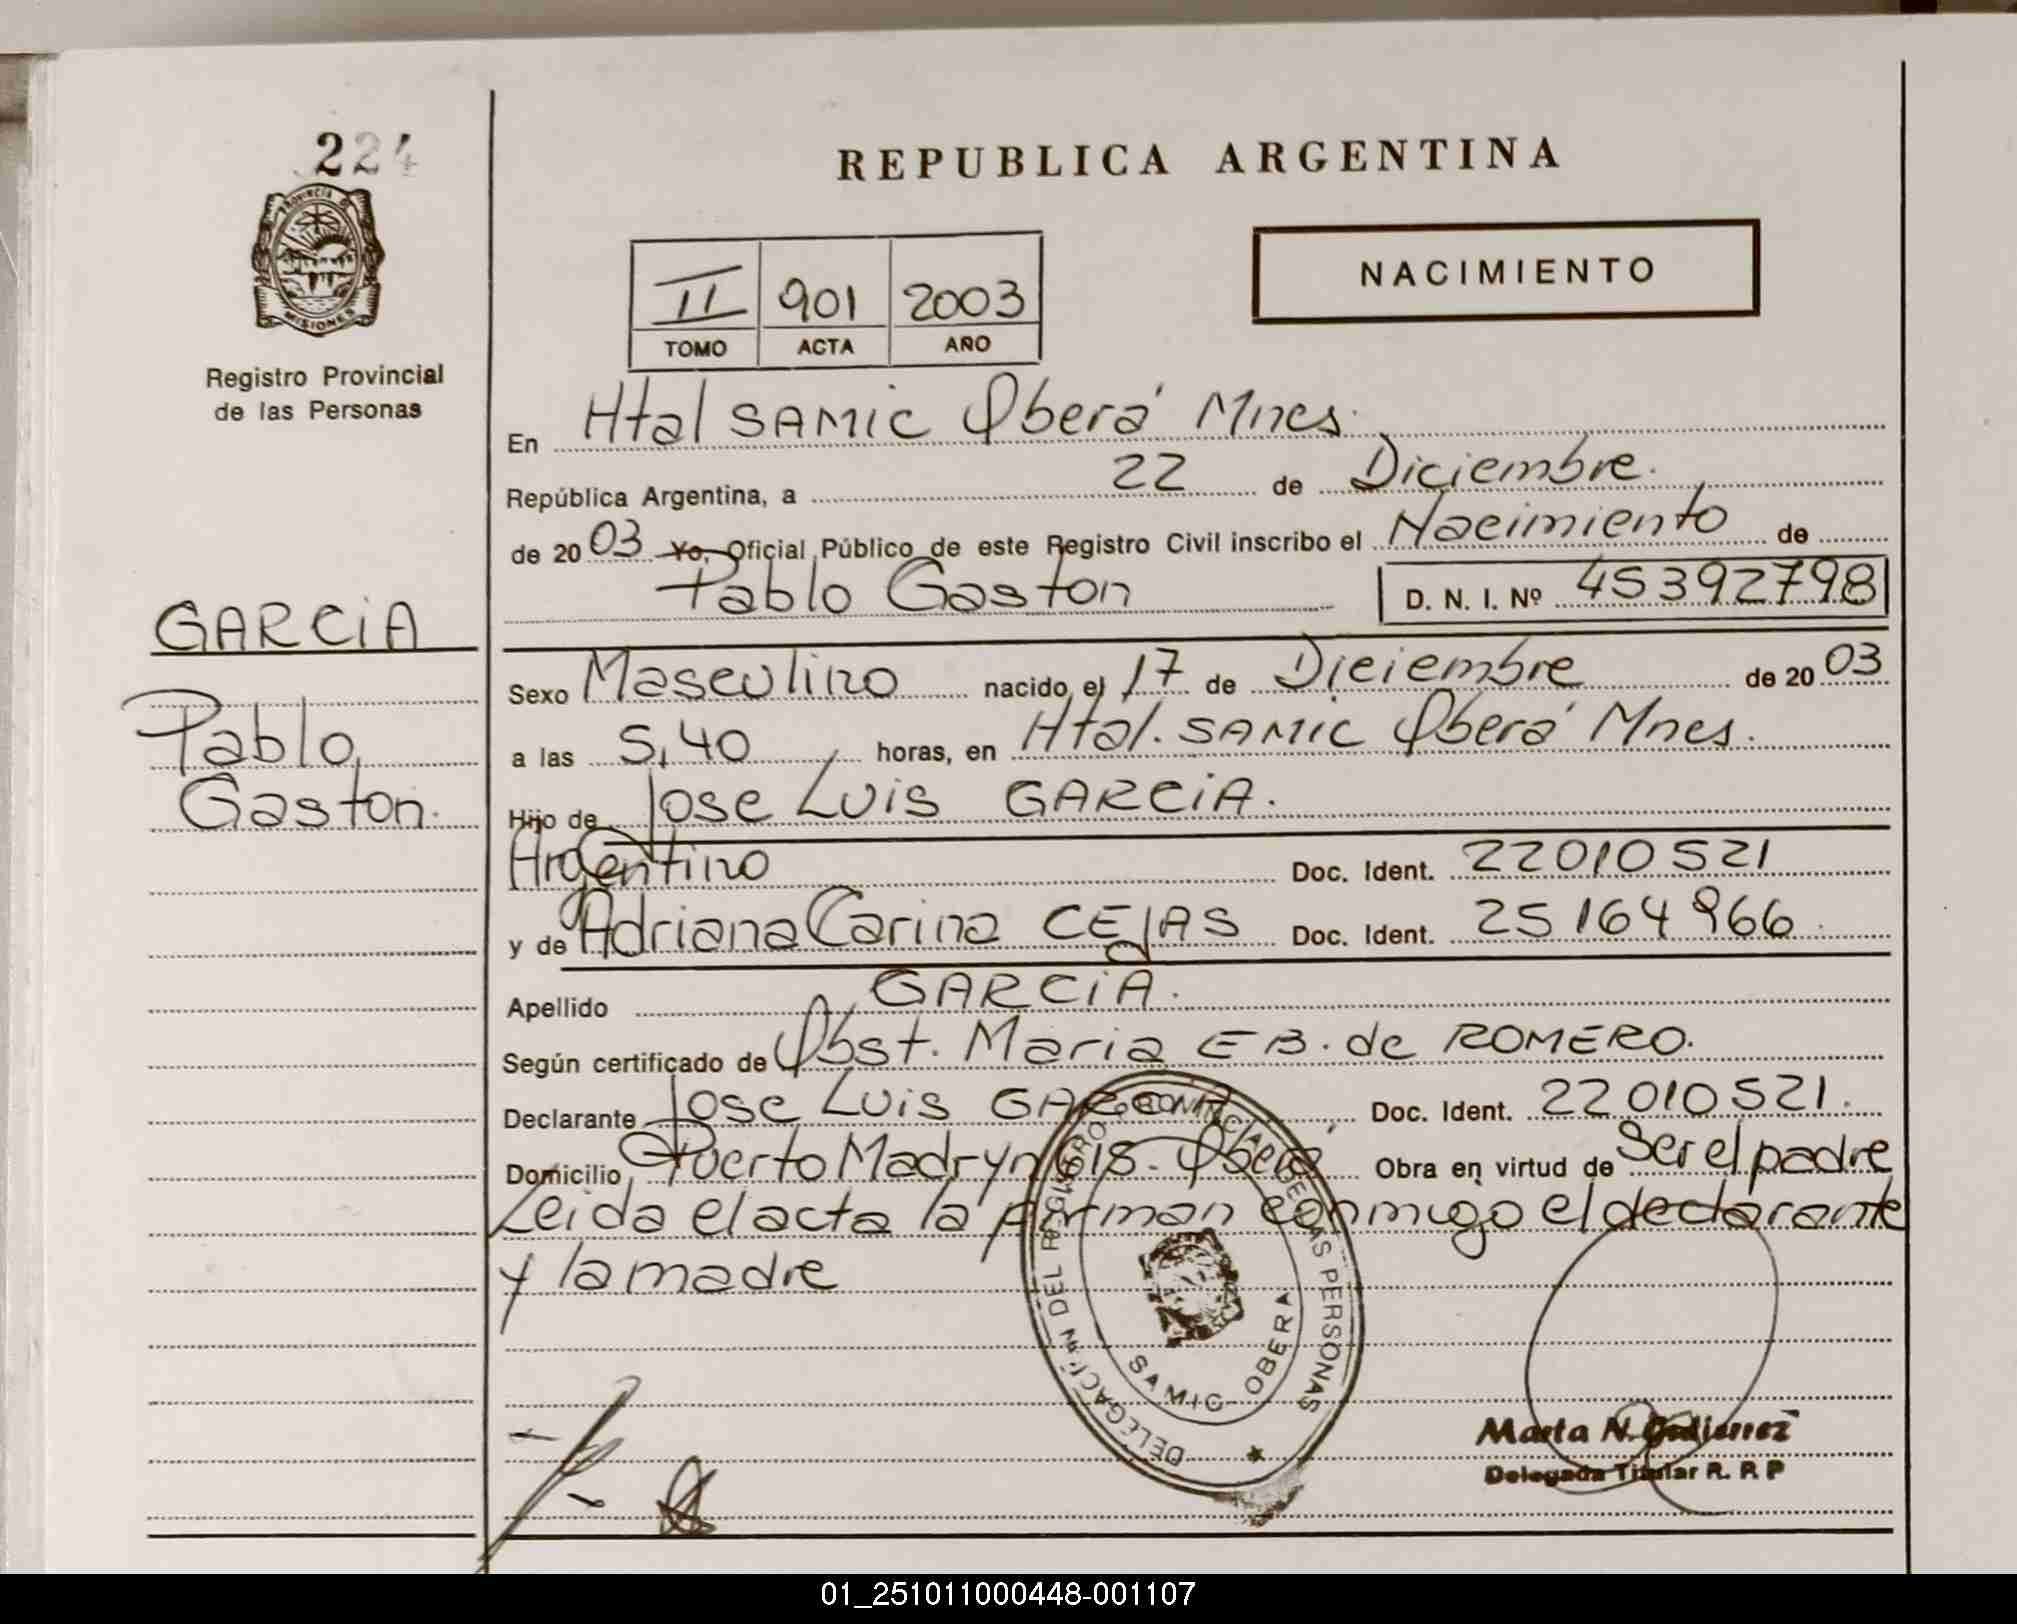 224
PROVINCIA D
MISIONES
Registro Provincial
de las Personas
REPUBLICA ARGENTINA
NACIMIENTO
II 901 2003
TOMO ACTA AÑO
En Htal SAMIC Oberá Mnes.
República Argentina, a 22 de Diciembre.
de 20 03 Yo, Oficial Público de este Registro Civil inscribo el Nacimiento de
Pablo Gaston D. N. I. Nº 45392798
GARCIA
Pablo
Gaston.
Sexo Masculino nacido el 17 de Diciembre de 20 03
a las 5,40 horas, en Htal. SAMIC Oberá Mnes.
Hijo de Jose Luis GARCIA.
Argentino Doc. Ident. 22010521
y de Adriana Carina CEJAS Doc. Ident. 25164966
Apellido GARCIA.
Según certificado de Obst. Maria E B. de ROMERO.
Declarante Jose Luis GARCIA Doc. Ident. 22010521.
Domicilio Puerto Madryn Oberá Obra en virtud de Ser el padre
Leida el acta la firman conmigo el declarante
y la madre
DELEGACIÓN DEL REGISTRO PROVINCIAL DE LAS PERSONAS
SAMIC - OBERA
Marta N. Gutierrez
Delegada Titular R. P. P
01_251011000448-001107